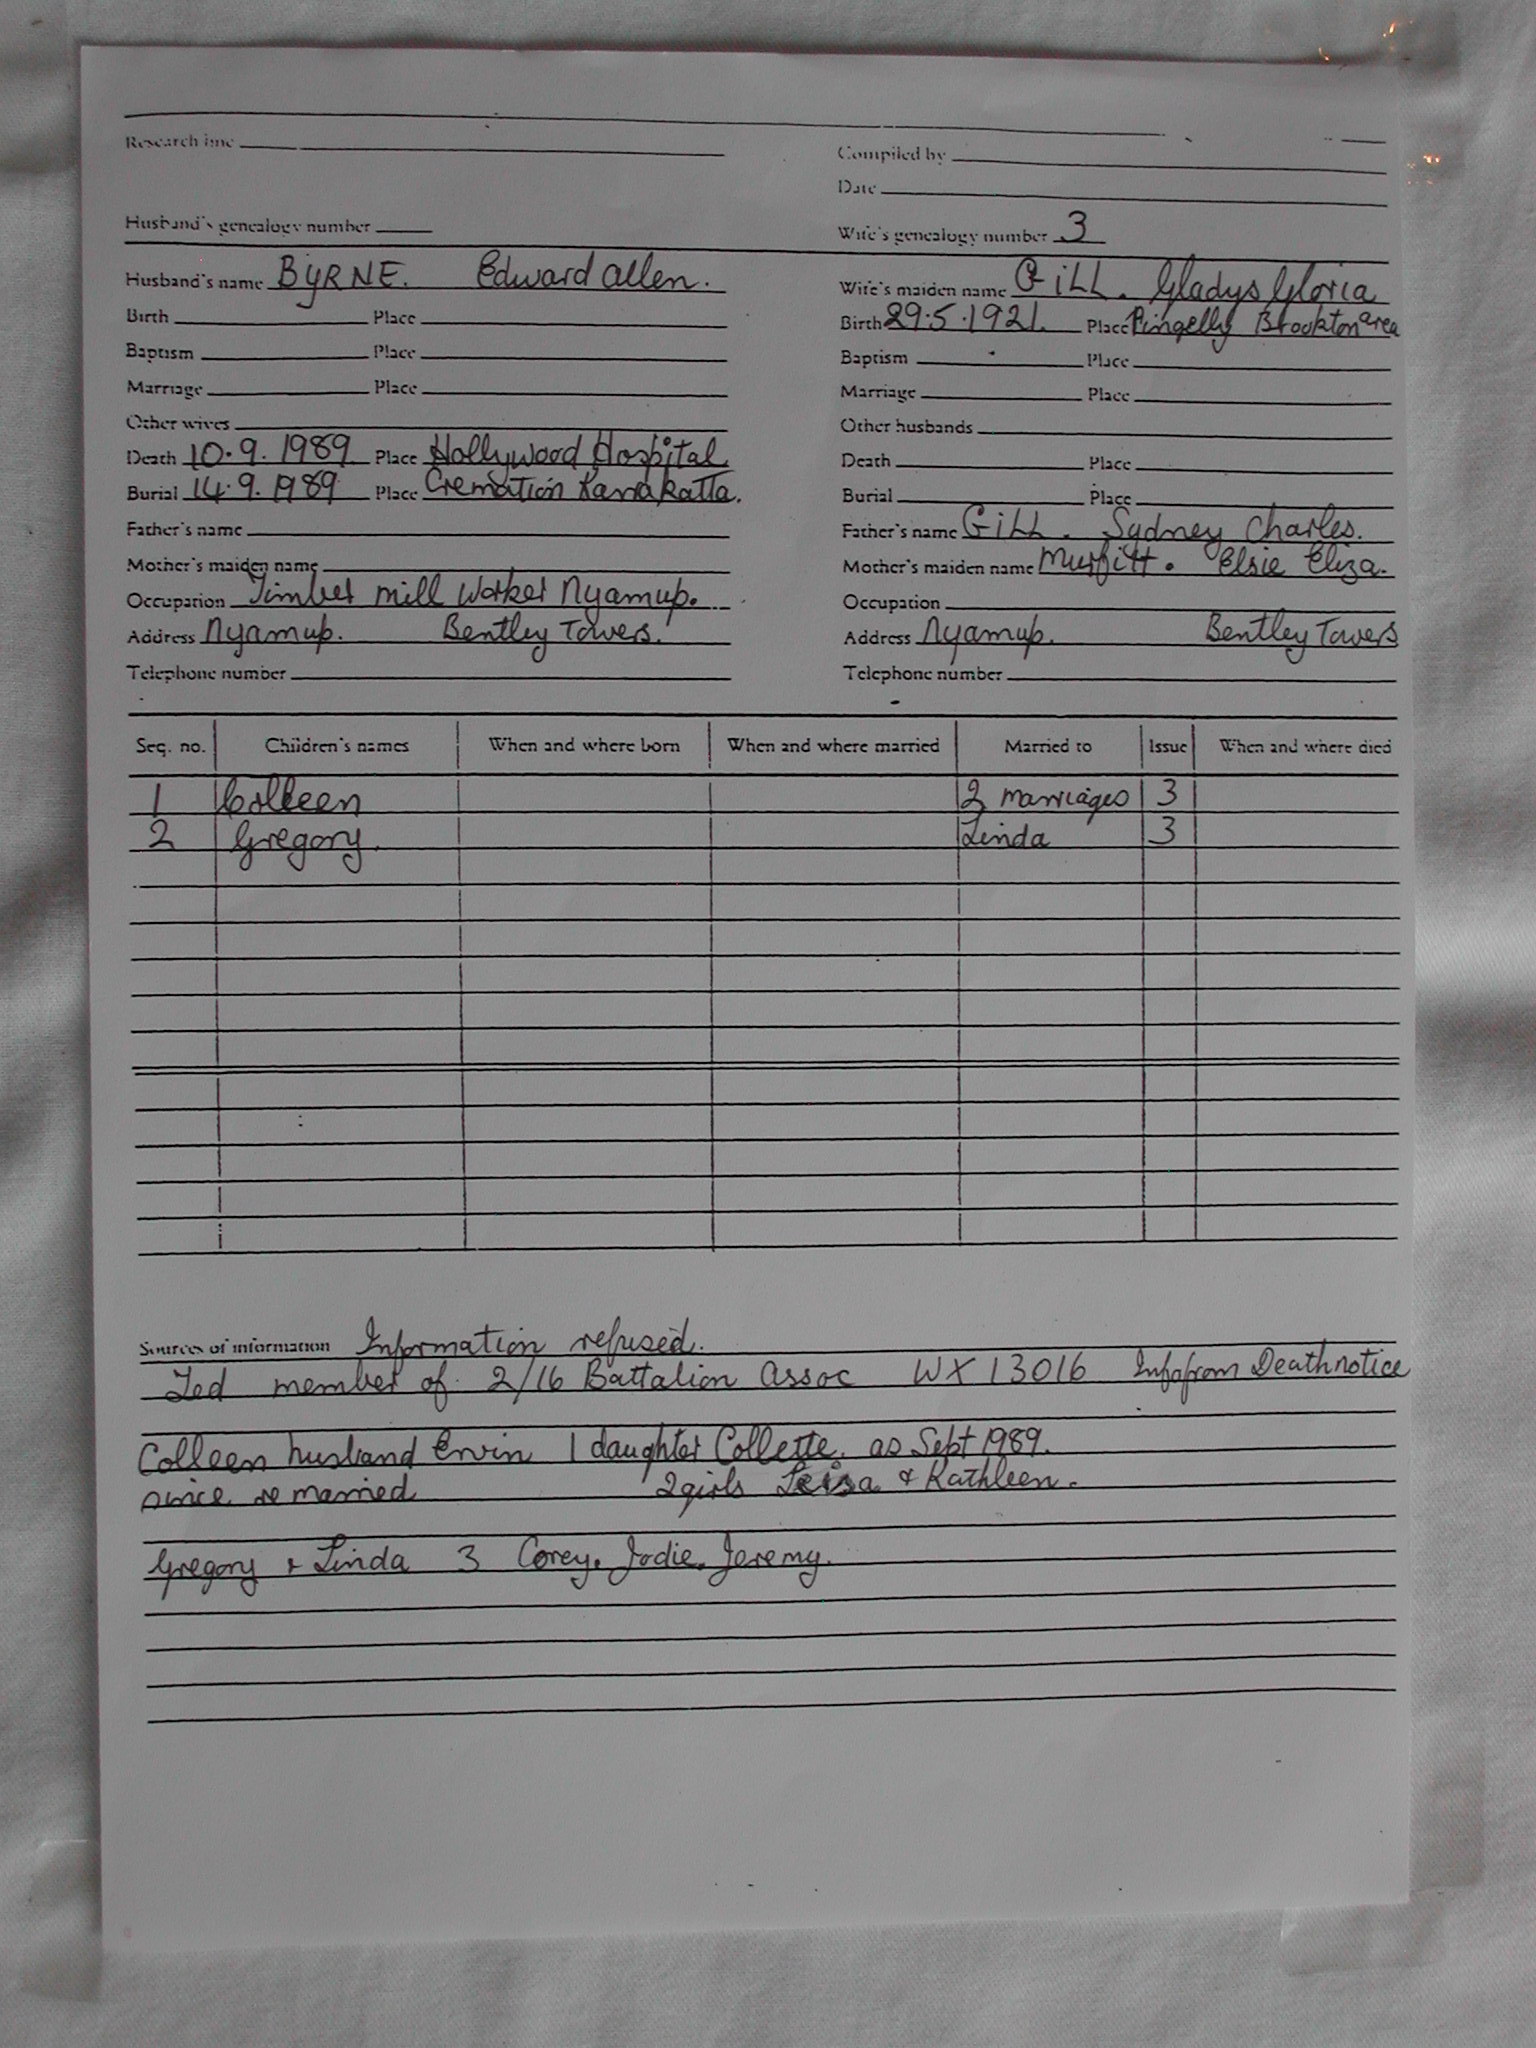 Research line
Compiled by
Date
Husband's genealogy number
Wife's genealogy number 3
Husband's name BYRNE. Edward Allen.
Wife's maiden name GiLL. Gladys Gloria
Birth Place
Birth 29.5.1921. Place Pingelly Brookton area
Baptism Place
Baptism Place
Marriage Place
Marriage Place
Other wives
Other husbands
Death 10.9.1989 Place Hollywood Hospital
Death Place
Burial 14.9.1989 Place Cremation Karrakatta.
Burial Place
Father's name
Father's name GiLL. Sydney Charles.
Mother's maiden name
Mother's maiden name Murfitt. Elsie Eliza.
Occupation Timber mill Worker Nyamup.
Occupation
Address Nyamup. Bentley Towers.
Address Nyamup. Bentley Towers
Telephone number
Telephone number
Seq. no. Children's names When and where born When and where married Married to Issue When and where died
1 Colleen 2 marriages 3
2 Gregory. Linda 3
Sources of information Information refused.
Ted member of 2/16 Battalion Assoc WX 13016 Info from Death notice
Colleen husband Ervin 1 daughter Collette. as Sept 1989.
since remarried 2 girls Leisa & Kathleen.
Gregory & Linda 3 Corey. Jodie. Jeremy.